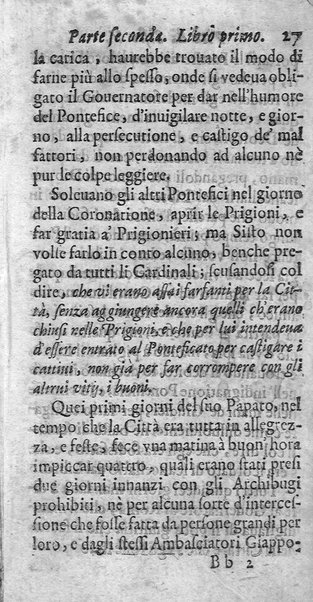 Parte seconda. Libro primo. 27
la carica, haurebbe trouato il modo di
farne più allo spesso, onde si vedeua obli-
gato il Gouernatore per dar nell'humore
del Pontefice, d'inuigilare notte, e gior-
no, alla persecutione, e castigo de' mal
fattori, non perdonando ad alcuno nè
pur le colpe leggiere.
Soleuano gli altri Pontefici nel giorno
della Coronatione, aprir le Prigioni, e
far gratia a' Prigionieri; ma Sisto non
volse farlo in conto alcuno, benche pre-
gato da tutti li Cardinali; scusandosi col
dire, che vi erano assai farfanti per la Cit-
tà, senza aggiungere ancora quelli ch'erano
chiusi nelle Prigioni, e che per lui intendeua
d'essere entrato al Ponteficato per castigare i
cattiui, non già per far corrompere con gli
altrui vitij, i buoni.
Quei primi giorni del suo Papato, nel
tempo che la Città era tutta in allegrez-
za, e feste, fece vna matina à buon' hora
impiccar quattro, quali erano stati presi
due giorni innanzi con gli Archibugi
prohibiti, nè per alcuna sorte d'interces-
sione che fosse fatta da persone grandi per
loro, e dagli stessi Ambasciatori Giappo-
B b 2